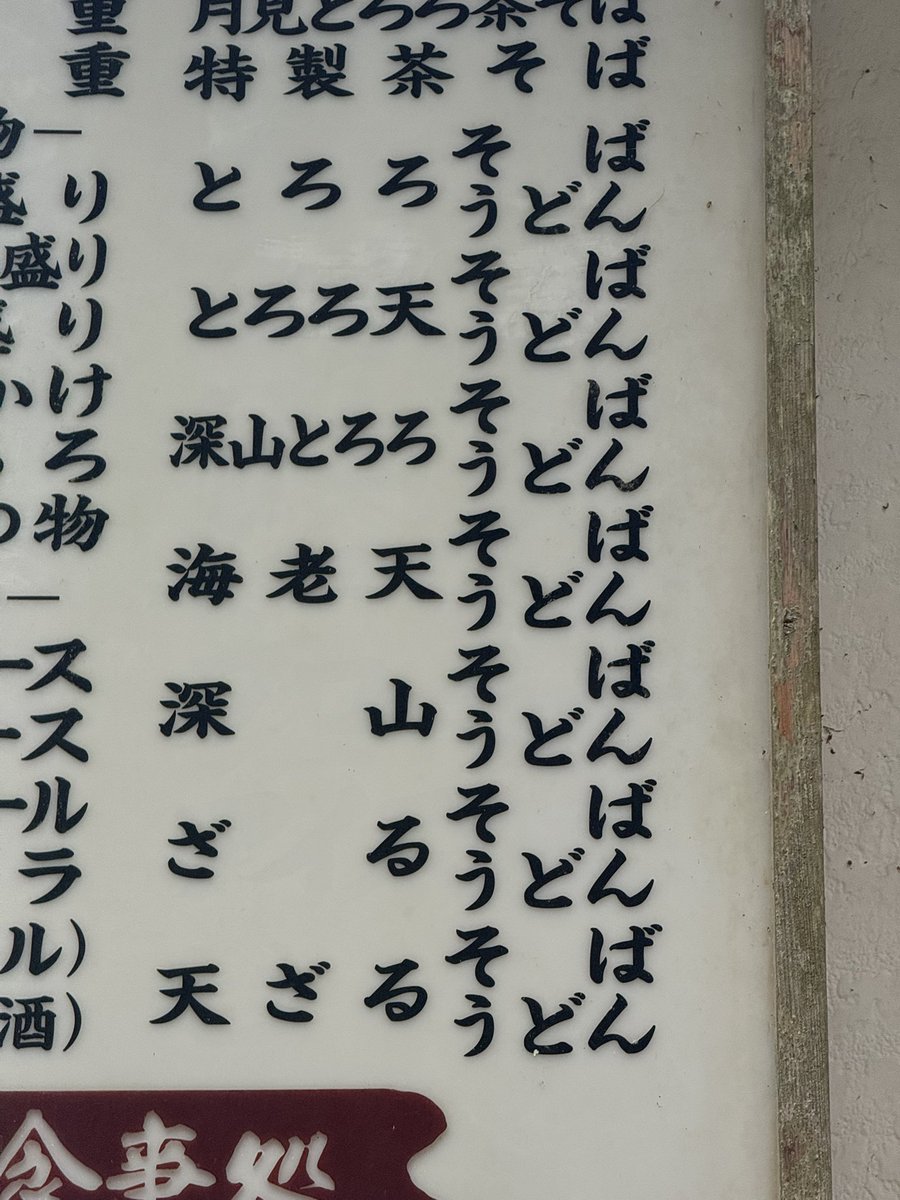 重
重
物一
盛り
盛り
り
かけ
ろ
物
一
ース
ース
ール
ラ
ル）
酒）
月見とろろ茶そば
特製茶そば
とろろ
そば
うどん
とろろ天
そば
うどん
深山とろろ
そば
うどん
海老天
そば
うどん
深山
そば
うどん
ざる
そば
うどん
天ざる
そば
うどん
食事処